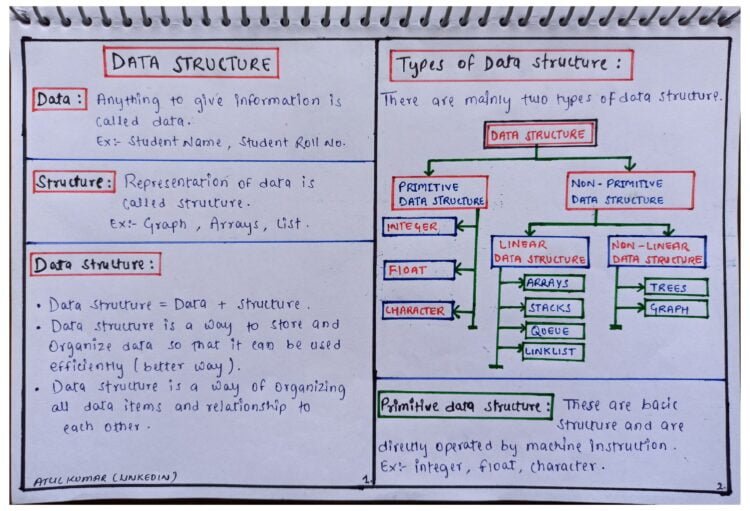 DATA STRUCTURE
Data : Anything to give information is
called data.
Ex:- Student Name , Student Roll No.
Structure: Representation of data is
called structure.
Ex:- Graph , Arrays , List .
Data structure :
• Data structure = Data + structure .
• Data structure is a way to store and
Organize data so that it can be used
efficiently ( better way ) .
• Data structure is a way of organizing
all data items and relationship to
each other .
ATUL KUMAR (LINKEDIN)
1.
Types of Data structure :
There are mainly two types of data structure.
DATA STRUCTURE
PRIMITIVE
DATA STRUCTURE
NON-PRIMITIVE
DATA STRUCTURE
INTEGER
FLOAT
CHARACTER
LINEAR
DATA STRUCTURE
NON-LINEAR
DATA STRUCTURE
ARRAYS
STACKS
QUEUE
LINKLIST
TREES
GRAPH
Primitive data structure : These are basic
structure and are
directly operated by machine instruction .
Ex:- integer , float , character .
2.